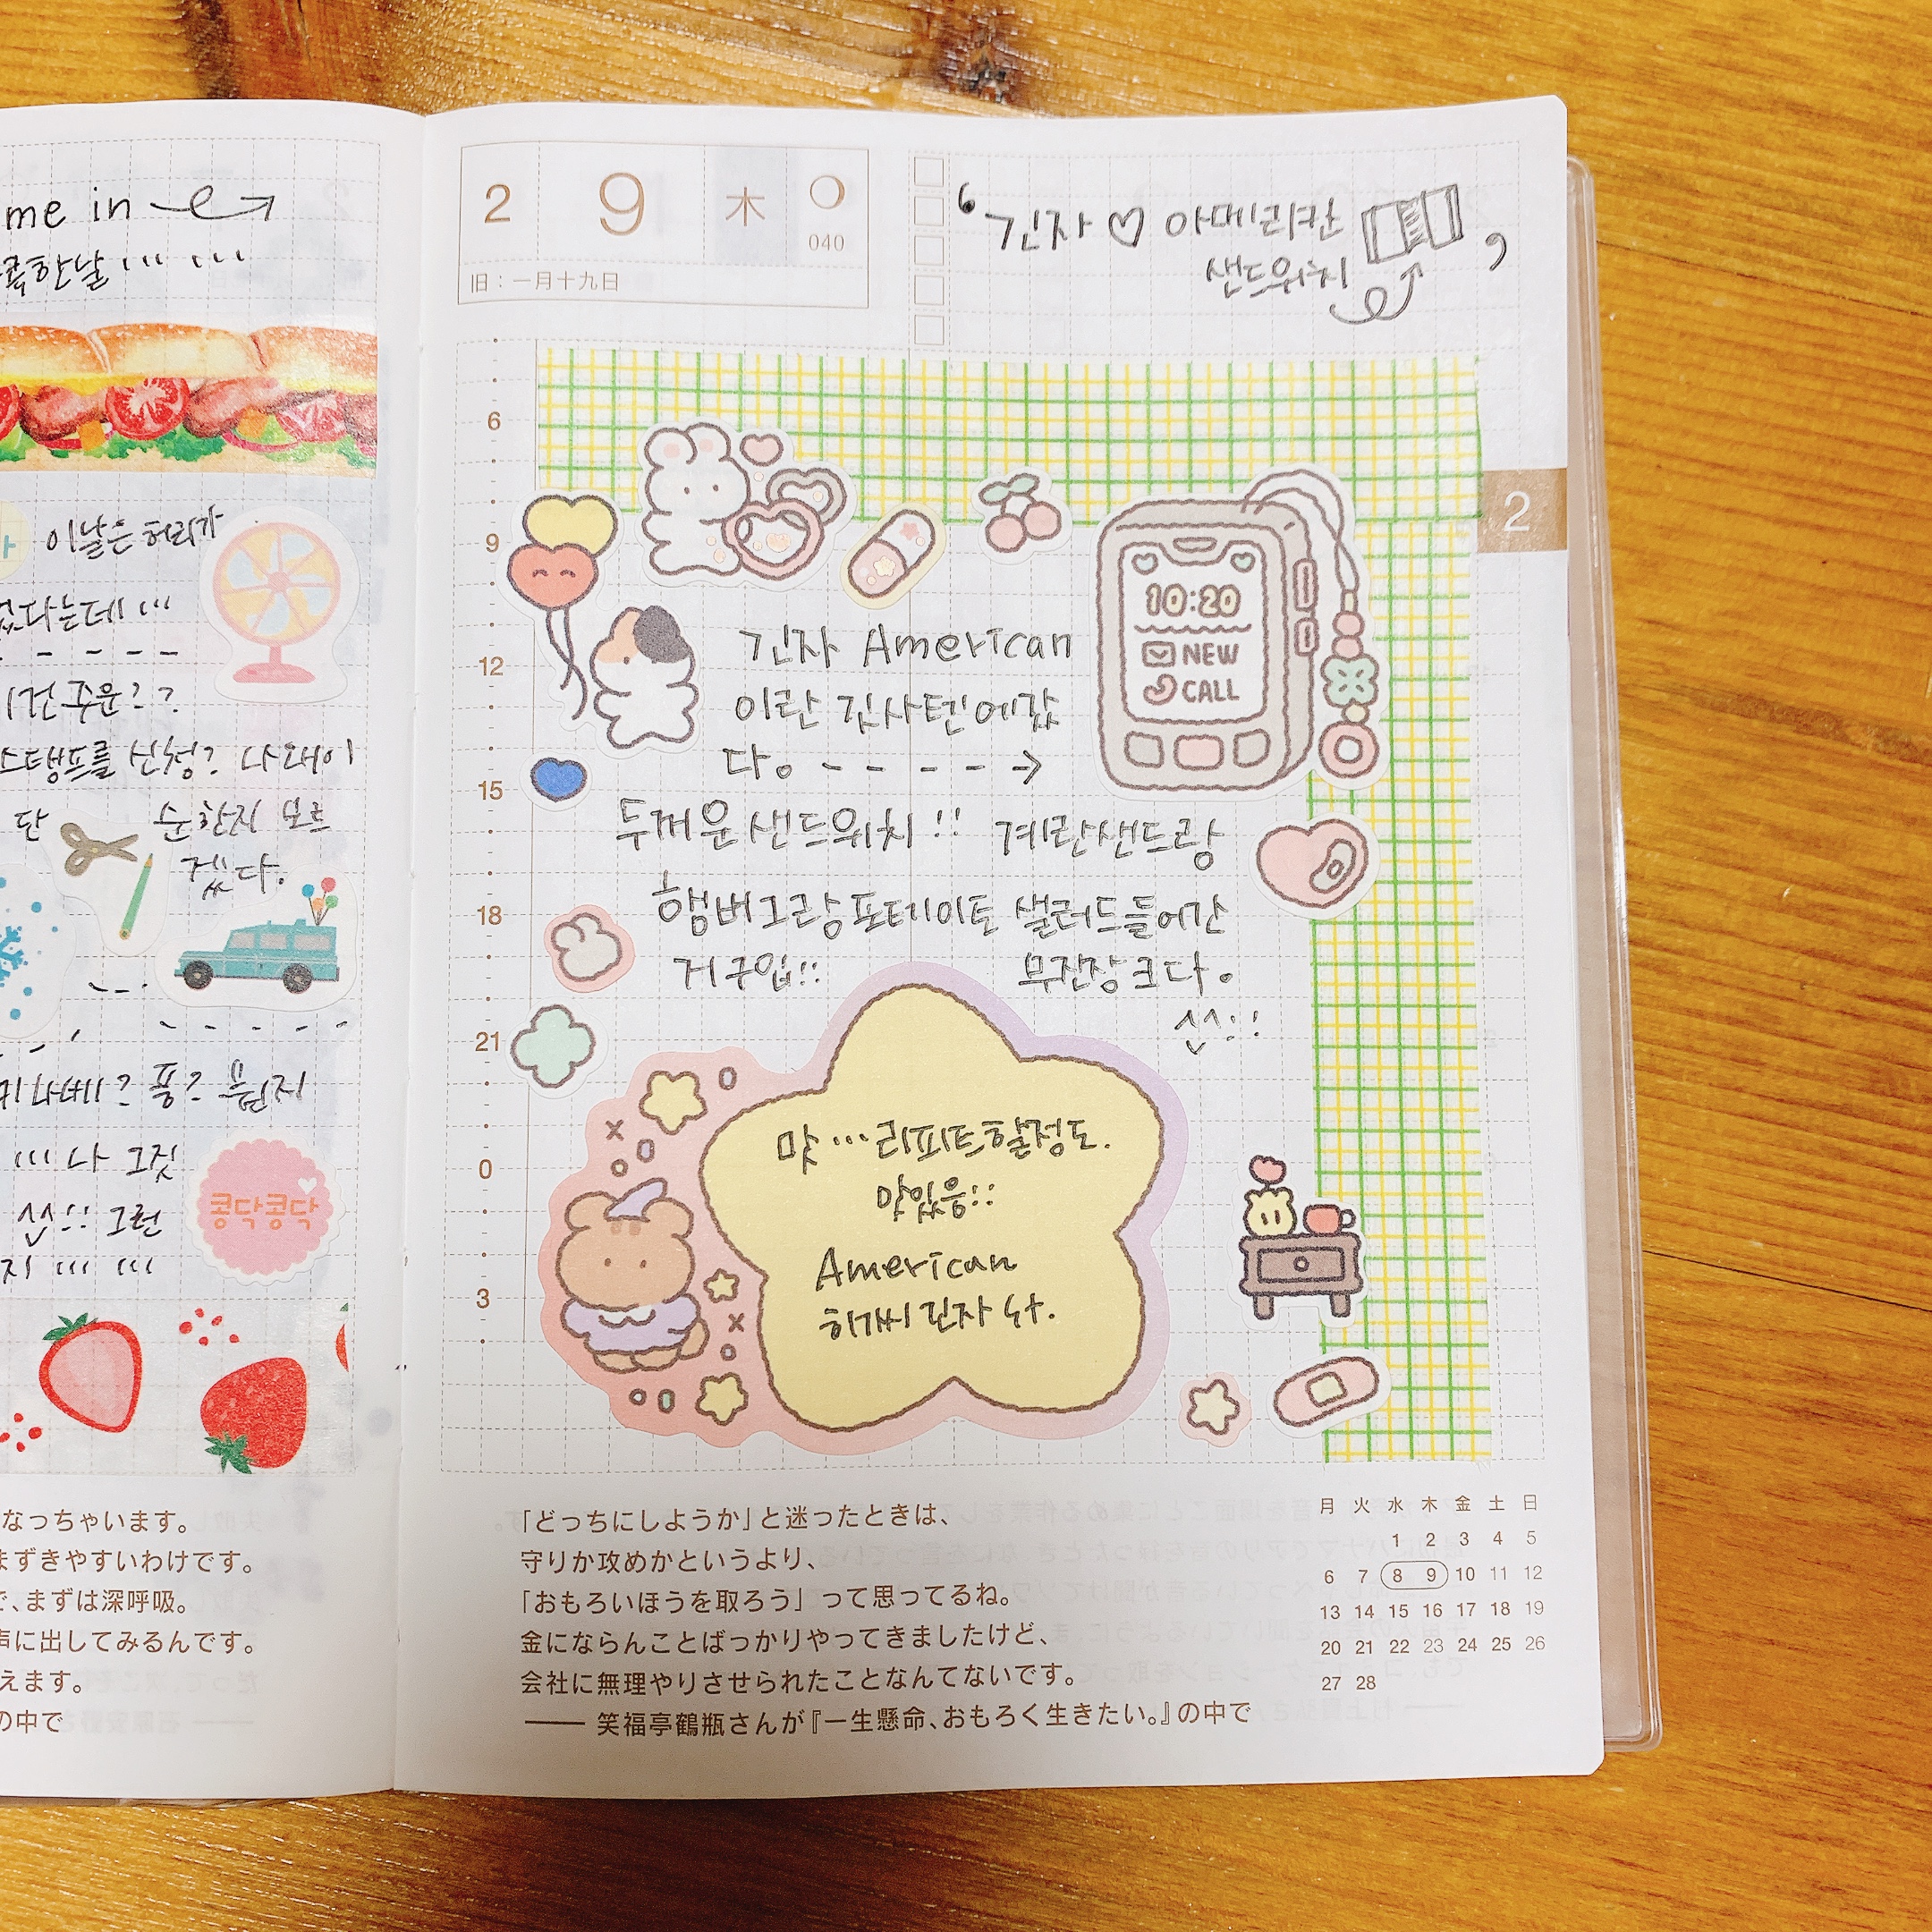 me in
한날 ,,, ,,,
이날은 허리가
없다는데 ,,,
이건 주운??
스탬프를 신청? 나왜이
단 순한지 모르
겠다.
? 풍? 뭔지
,,, 나 그짓
그런
지 ,,, ,,,
콩닥콩닥
なっちゃいます。
まずきやすいわけです。
で、まずは深呼吸。
声に出してみるんです。
えます。
の中で
2 9 木
040
旧：一月十九日
긴자 ♡ 아메리칸
샌드위치
2
6
9
12
15
18
21
0
3
10:20
NEW
CALL
긴자 American
이란 킷사텐에갔
다。- - - - - →
두꺼운샌드위치 !! 계란샌드랑
햄버그랑포테이토 샐러드들어간
거 구입:: 무진장크다。
맛...리피트할정도.
맛있음:::
American
긴자
「どっちにしようか」と迷ったときは、
守りか攻めかというより、
「おもろいほうを取ろう」って思ってるね。
金にならんことばっかりやってきましたけど、
会社に無理やりさせられたことなんてないです。
—— 笑福亭鶴瓶さんが『一生懸命、おもろく生きたい。』の中で
月 火 水 木 金 土 日
1 2 3 4 5
6 7 8 9 10 11 12
13 14 15 16 17 18 19
20 21 22 23 24 25 26
27 28